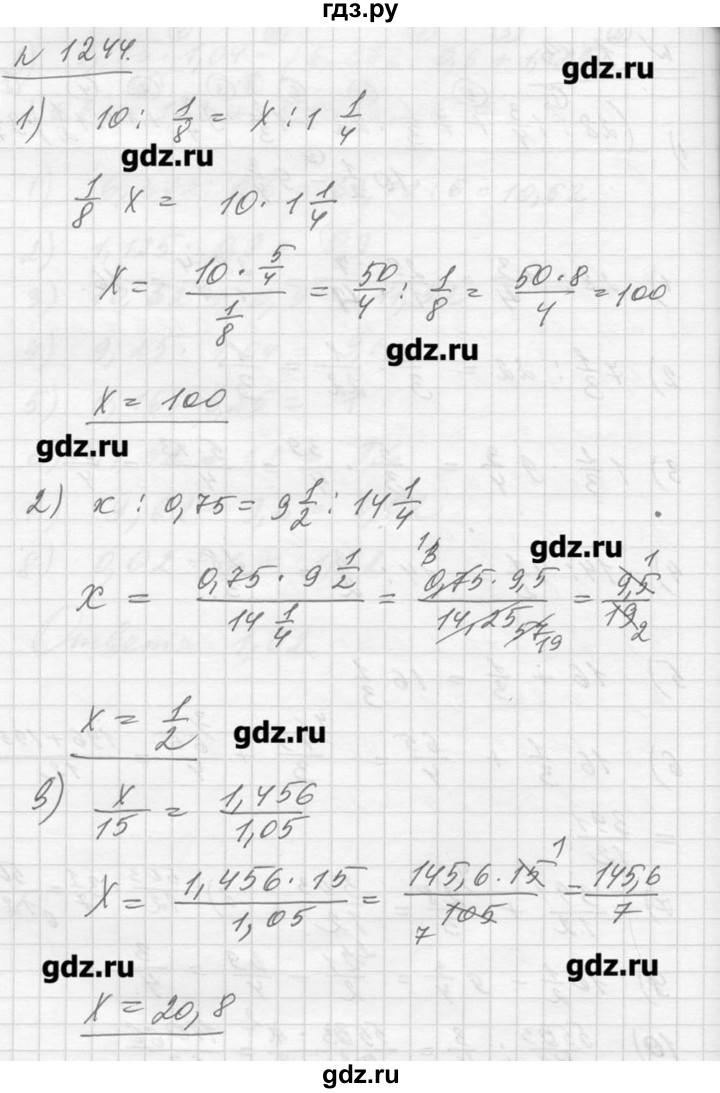 гдз.ру
N 1244.
gdz.ru
1) 10 : 1/8 = x : 1 1/4
gdz.ru
1/8 x = 10 · 1 1/4
x = (10 · 5/4)/(1/8) = 50/4 : 1/8 = (50 · 8)/4 = 100
gdz.ru
x = 100
gdz.ru
2) x : 0,75 = 9 1/2 : 14 1/4
gdz.ru
x = (0,75 · 9 1/2)/(14 1/4) = (0,75 · 9,5)/(14,25) = 9,5/19
1 3 57 19 1 2
x = 1/2
gdz.ru
3) x/15 = 1,456/1,05
x = (1,456 · 15)/1,05 = (145,6 · 15)/105 = 145,6/7
1 7
gdz.ru
gdz.ru
x = 20,8
gdz.ru